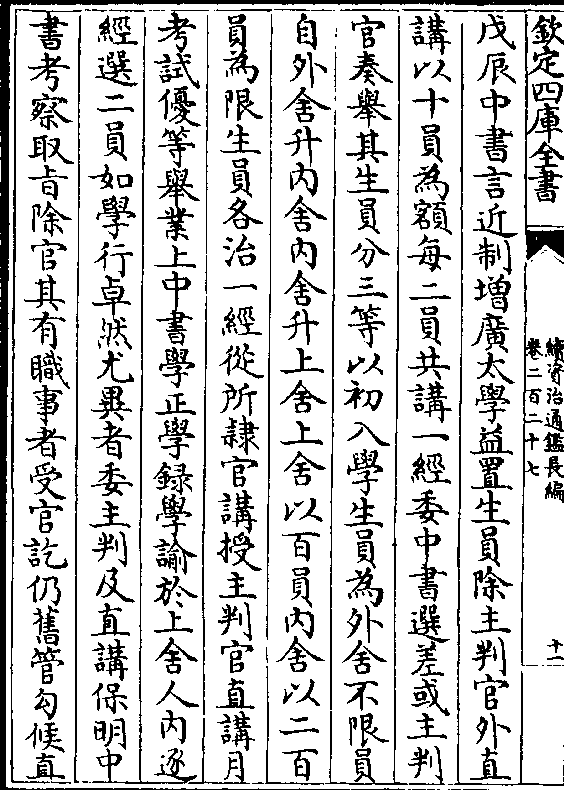 欽定四庫全書
續資治通鑑長編
卷二百二十七
十一
戊辰中書言近制增廣太學益置生員除主判官外直
講以十員為額每二員共講一經委中書選差或主判
官奏舉其生員分三等以初入學生員為外舍不限員
自外舍升内舍内舍升上舍上舍以百員内舍以二百
員為限生員各治一經從所隷官講授主判官直講月
考試優等舉業上中書學正學録學諭於上舍人内逐
經選二員如學行卓然尤異者委主判及直講保明中
書考察取㫖除官其有職事者受官訖仍舊管勾候直